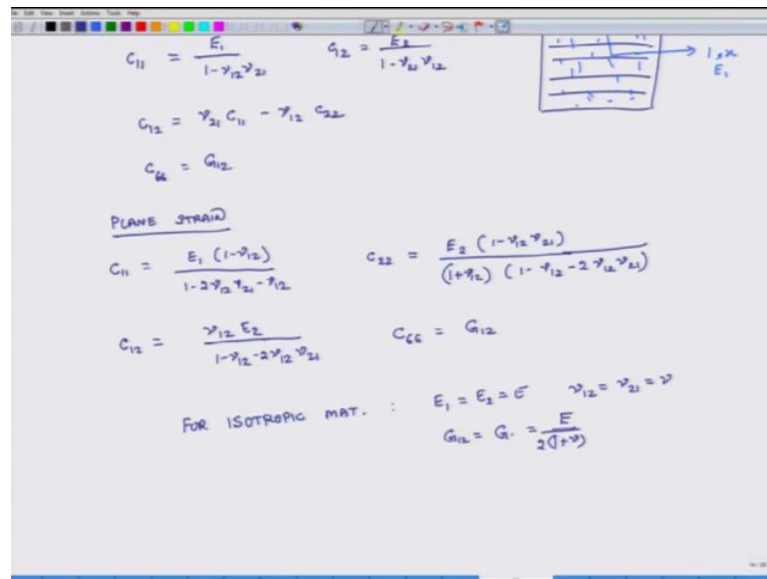 C₁₁ = E₁ / (1-ν₁₂ν₂₁) C₁₂ = E₂ / (1-ν₂₁ν₁₂)
1, x
E₁
C₁₂ = ν₂₁ C₁₁ - ν₁₂ C₂₂
C₆₆ = G₁₂
PLANE STRAIN
C₁₁ = E₁ (1-ν₁₂) / (1-2ν₁₂ν₂₁-ν₁₂) C₂₂ = E₂ (1-ν₁₂ν₂₁) / ((1+ν₁₂) (1-ν₁₂-2ν₁₂ν₂₁))
C₁₂ = ν₁₂ E₂ / (1-ν₁₂-2ν₁₂ν₂₁) C₆₆ = G₁₂
FOR ISOTROPIC MAT. : E₁ = E₂ = E ν₁₂ = ν₂₁ = ν
G₁₂ = G = E / 2(1+ν)